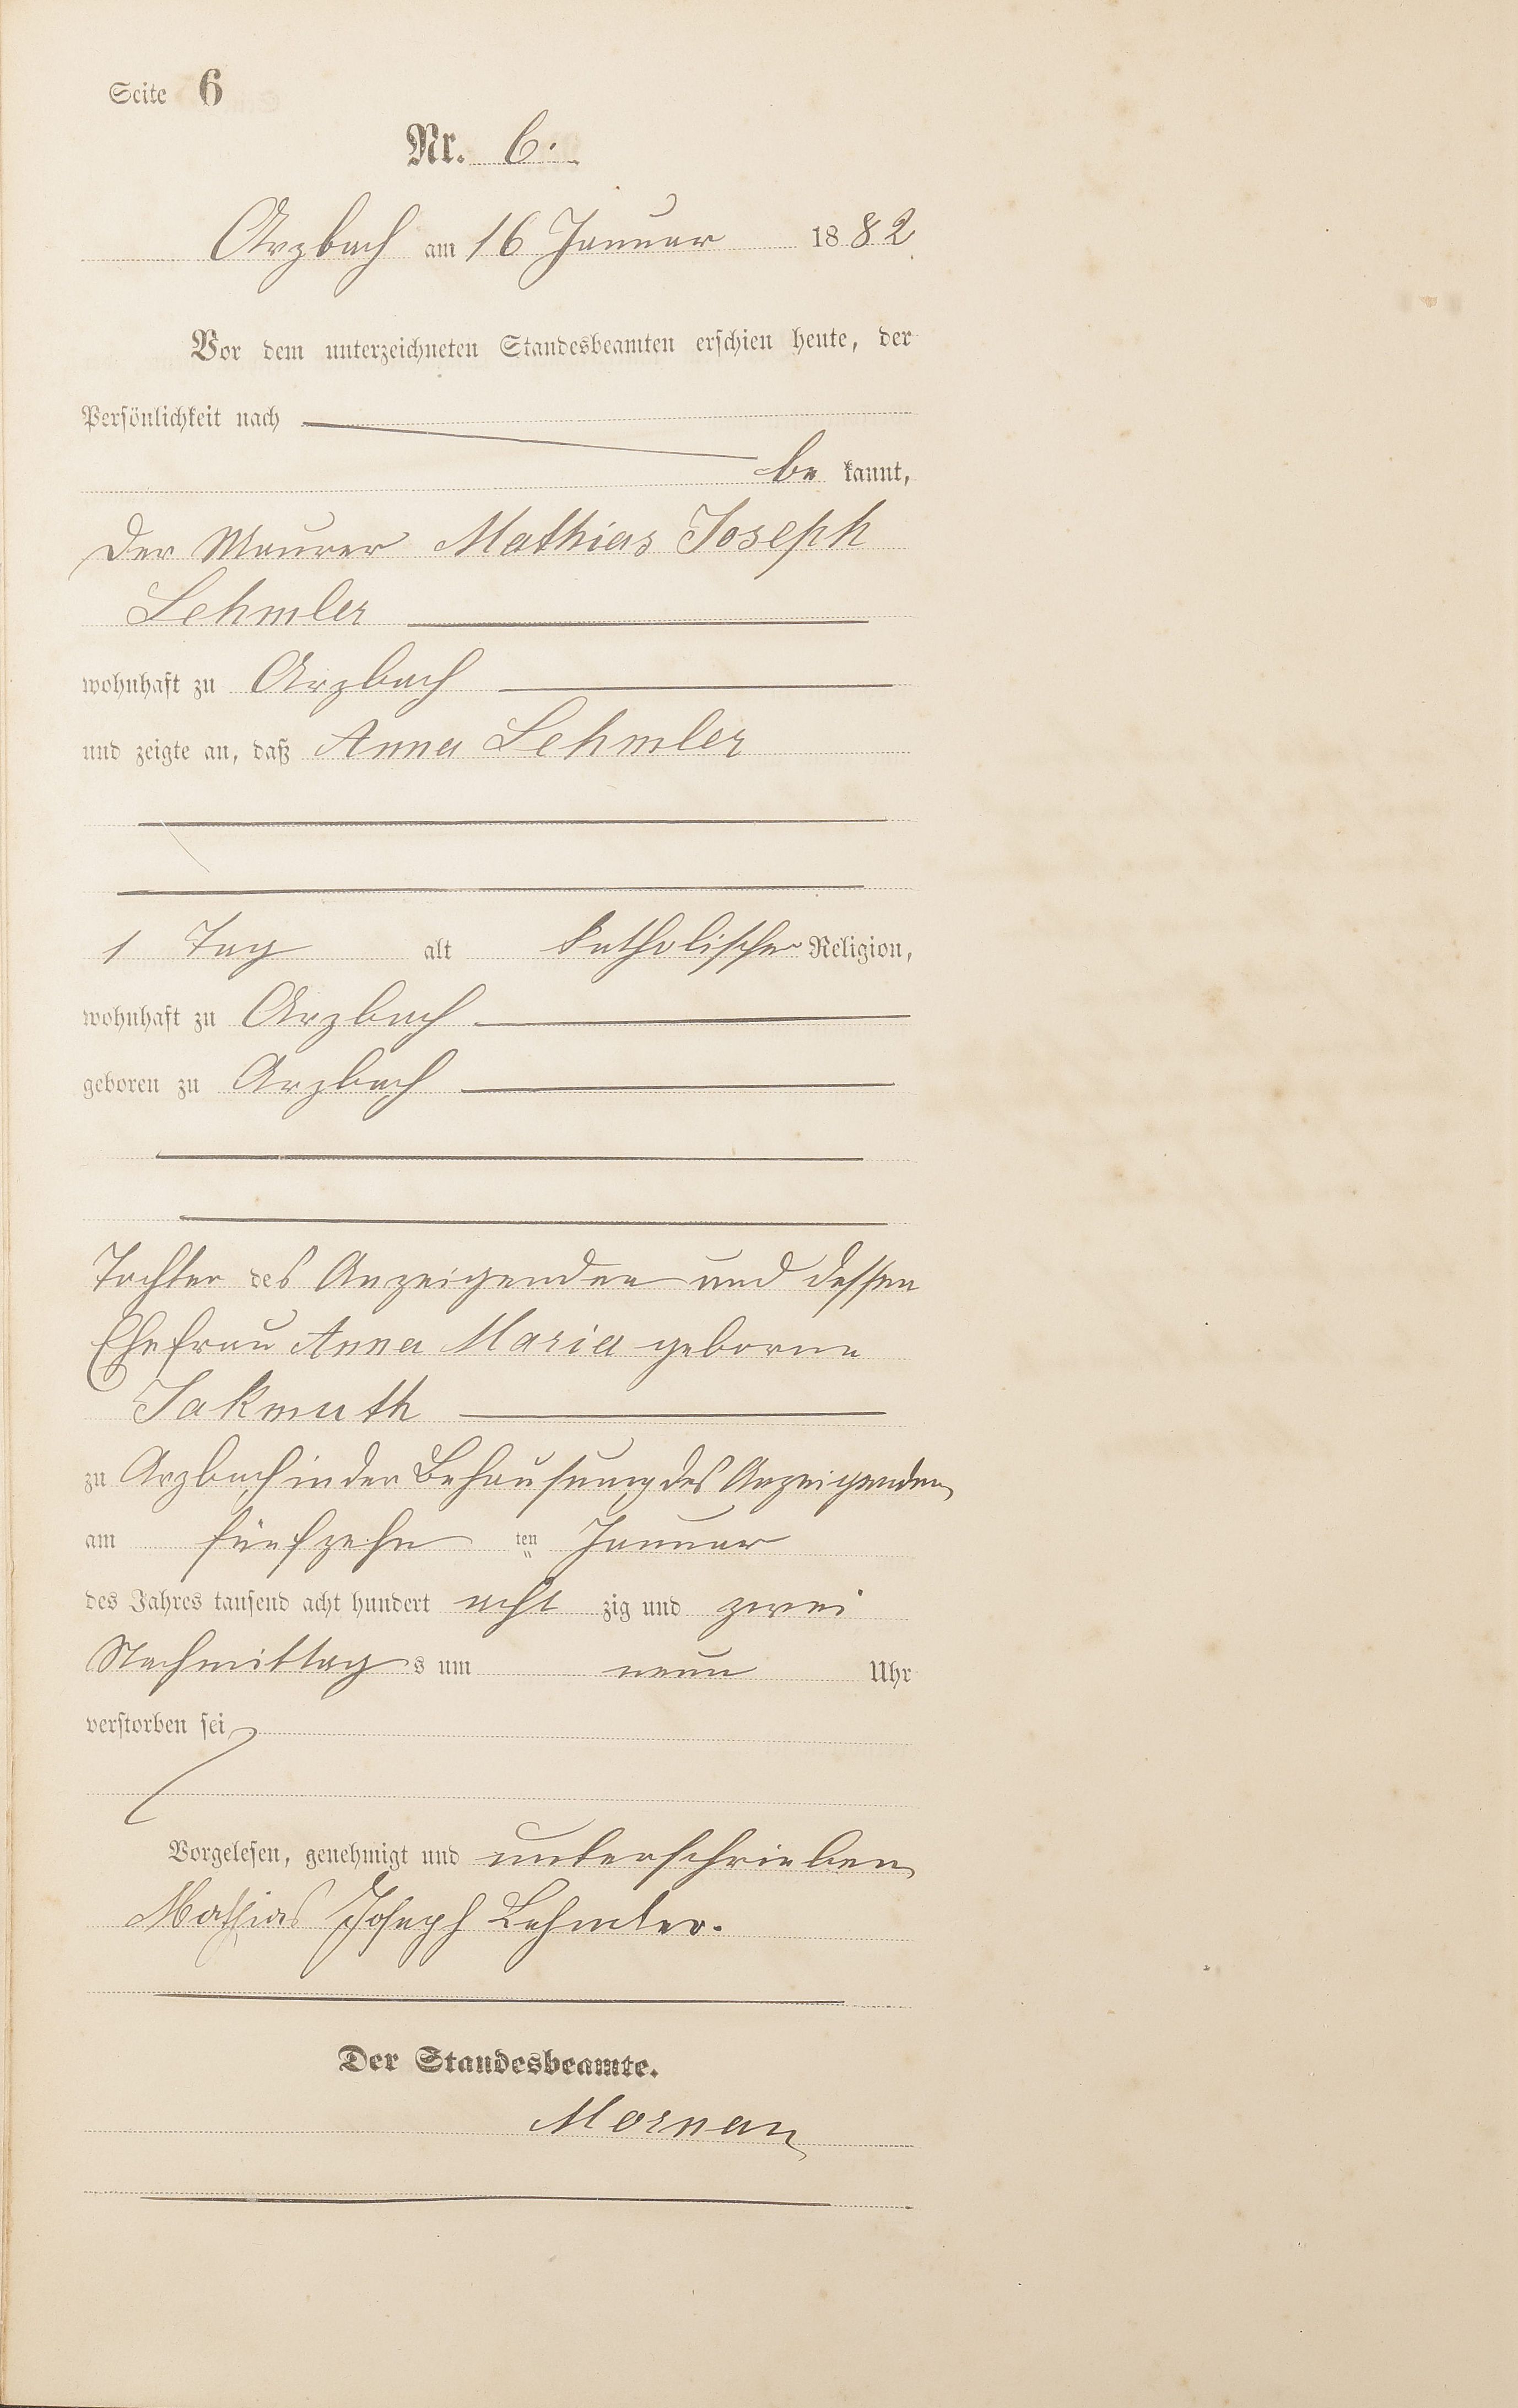 Seite 6
Nr. 6.
Arzbach am 16 Januar 1882.
Vor dem unterzeichneten Standesbeamten erschien heute, der
Persönlichkeit nach
be kannt,
Der Maurer Mathias Joseph
Lehmler
wohnhaft zu Arzbach
und zeigte an, daß Anna Lehmler
1 Tag alt katholischer Religion,
wohnhaft zu Arzbach
geboren zu Arzbach
Tochter des Anzeigenden und dessen
Ehefrau Anna Maria geborne
Sakmuth
zu Arzbach in der Behausung des Anzeigenden
am fünfzehn ten Januar
des Jahres tausend acht hundert acht zig und zwei
Nachmittag s um neun Uhr
verstorben sei
Vorgelesen, genehmigt und unterschrieben
Mathias Joseph Lehmler.
Der Standesbeamte.